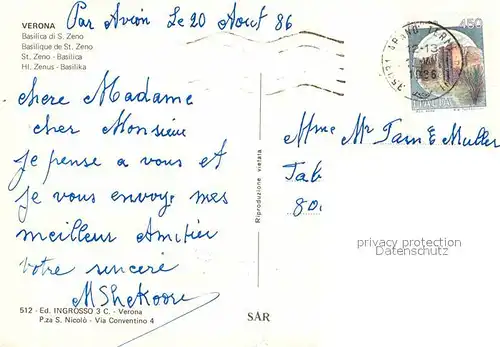 VERONA
Basilica di S. Zeno
Basilique de St. Zeno
St. Zeno - Basilica
Hl. Zenus - Basilika
Par Avion Le 20 Aout 86
450
12-13
1986
chere Madame
cher Monsieur
je pense a vous et
je vous envoye mes
meilleur Amitier
votre sincere
MShekoore
Riproduzione vietata
Mme Mr Tarn E Muller
Tab
80.
privacy protection
Datenschutz
512 - Ed. INGROSSO 3 C. - Verona
P.za S. Nicolò - Via Conventino 4
SAR